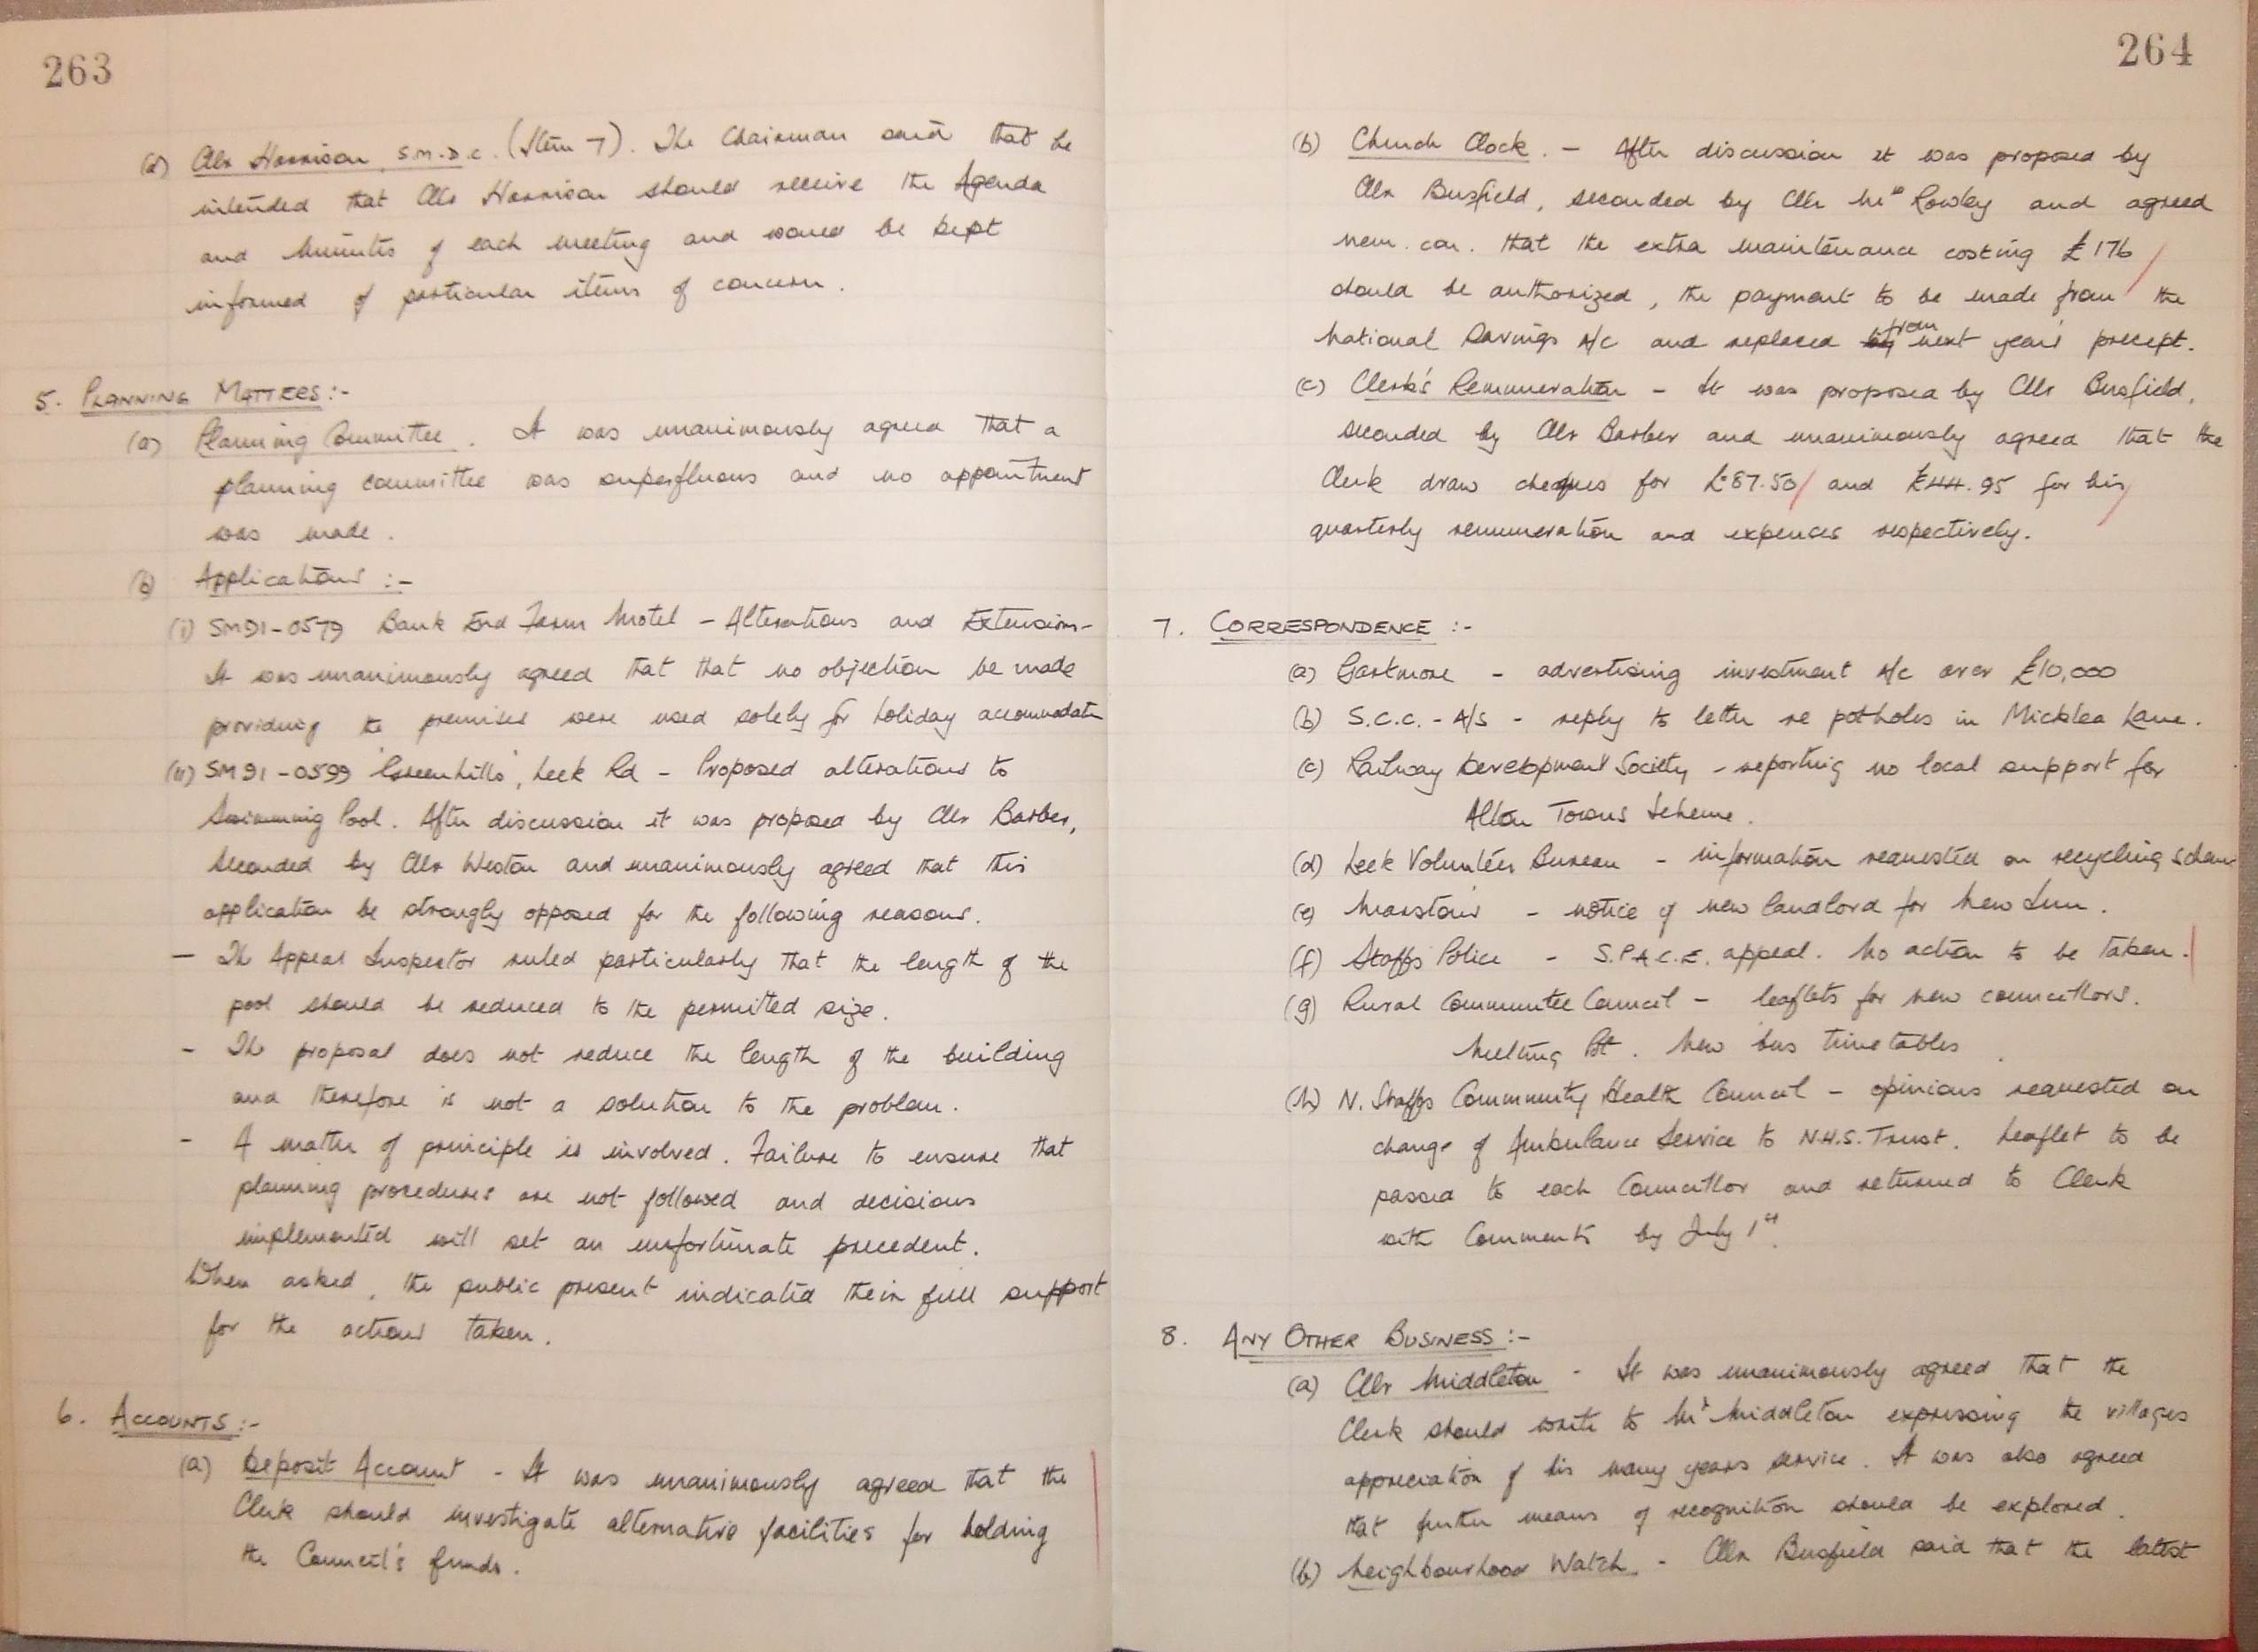 263
(d) Cllr Harrison, S.M.D.C. (Item 7). The Chairman said that he
intended that Cllr Harrison should receive the Agenda
and Minutes of each meeting and would be kept
informed of particular items of concern.
5. PLANNING MATTERS:-
(a) Planning Committee. It was unanimously agreed that a
planning committee was superfluous and no appointment
was made.
(b) Applications :-
(i) SM91-0579 Bank End Farm Motel - Alterations and Extensions-
It was unanimously agreed that that no objection be made
providing the premises were used solely for holiday accommodation
(ii) SM91-0599 'Greenhills', Leek Rd - Proposed alterations to
Swimming Pool. After discussion it was proposed by Cllr Barber,
seconded by Cllr Weston and unanimously agreed that this
application be strongly opposed for the following reasons.
- The Appeal Inspector ruled particularly that the length of the
pool should be reduced to the permitted size.
- The proposal does not reduce the length of the building
and therefore is not a solution to the problem.
- A matter of principle is involved. Failure to ensure that
planning procedures are not followed and decisions
implemented will set an unfortunate precedent.
When asked, the public present indicated their full support
for the actions taken.
6. ACCOUNTS:-
(a) Deposit Account - It was unanimously agreed that the
Clerk should investigate alternative facilities for holding
the Council's funds.
264
(b) Church Clock. - After discussion it was proposed by
Cllr Busfield, seconded by Cllr Mrs Rowley and agreed
nem. con. that the extra maintenance costing £176
should be authorized, the payment to be made from the
National Savings A/c and replaced by from next years' precept.
(c) Clerk's Remuneration - It was proposed by Cllr Busfield,
seconded by Cllr Barber and unanimously agreed that the
Clerk draw cheques for £87.50 and £44.95 for his
quarterly remuneration and expences respectively.
7. CORRESPONDENCE :-
(a) Gartmore - advertising investment A/c over £10,000
(b) S.C.C. - A/S - reply to letter re potholes in Micklea Lane.
(c) Railway Development Society - reporting no local support for
Alton Towers Scheme.
(d) Leek Volunteer Bureau - information requested on recycling scheme
(e) Marstons - notice of new landlord for New Inn.
(f) Staffs Police - S.P.A.C.E. appeal. No action to be taken.
(g) Rural Communtee Council - leaflets for new councillors.
Melting Pot. New bus timetables.
(h) N. Staffs Community Health Council - opinions requested on
change of Ambulance Service to N.H.S. Trust. Leaflet to be
passed to each Councillor and returned to Clerk
with Comments by July 1st.
8. ANY OTHER BUSINESS :-
(a) Cllr Middleton - It was unanimously agreed that the
Clerk should write to Mr Middleton expressing the villages
appreciation of his many years service. It was also agreed
that further means of recognition should be explored.
(b) Neighbourhood Watch. - Cllr Busfield said that the latest